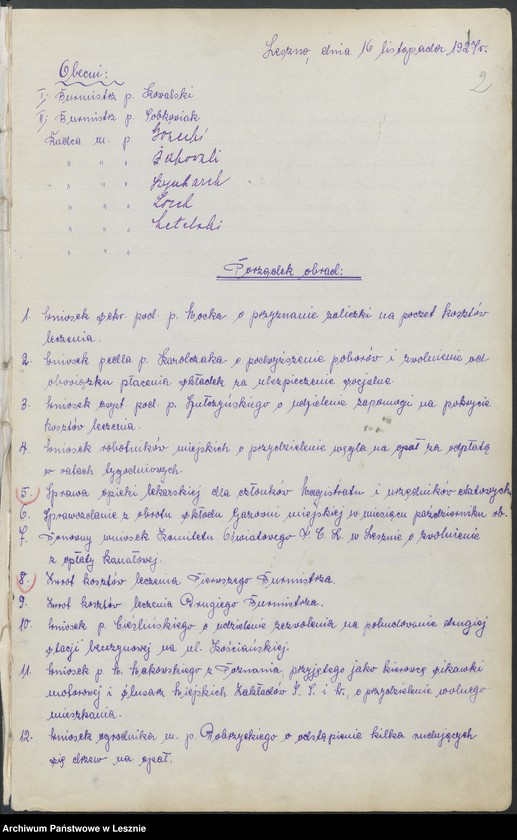 Leszno, dnia 16 listopada 1927r.
2
Obecni:
I. Burmistrz p. Kowalski
II. Burmistrz p. Sobkowiak
Radca m. p. Górecki
" " " Żakowski
" " "
" " "
" " "
" " "
Porządek obrad:
1. Wniosek sekr. pod. p. Nocka o przyznanie zaliczki na poczet kosztów
leczenia.
2. Wniosek pedla p. Karolczaka o podwyższenie poborów i zwolnienie od
obowiązku płacenia składek za ubezpieczenie socjalne.
3. Wniosek asyst. pod. p. Spułczyńskiego o udzielenie zapomogi na pokrycie
kosztów leczenia.
4. Wniosek robotników miejskich o przydzielenie węgla na opał za odpłatą
w ratach tygodniowych.
5. Sprawa opieki lekarskiej dla członków Magistratu i urzędników etatowych.
6. Sprawozdanie z obrotu składu Gazowni miejskiej w miesiącu październiku rb.
7. Ponowny wniosek Komitetu Oświatowego T. C. L. w Lesznie o zwolnienie
z opłaty kanałowej.
8. Zwrot kosztów leczenia Pierwszego Burmistrza.
9. Zwrot kosztów leczenia Drugiego Burmistrza.
10. Wniosek p. Cieślińskiego o udzielenie zezwolenia na pobudowanie drugiej
stacji benzynowej na ul. Kościańskiej.
11. Wniosek p. W. Makowskiego z Poznania, przyjętego jako kierowcę sikawki
motorowej i ślusarz Miejskich Zakładów Ś. S. i W., o przydzielenie wolnego
mieszkania.
12. Wniosek ogrodnika m. p. Dobrzyckiego o odstąpienie kilka znajdujących
się drzew na opał.
Archiwum Państwowe w Lesznie